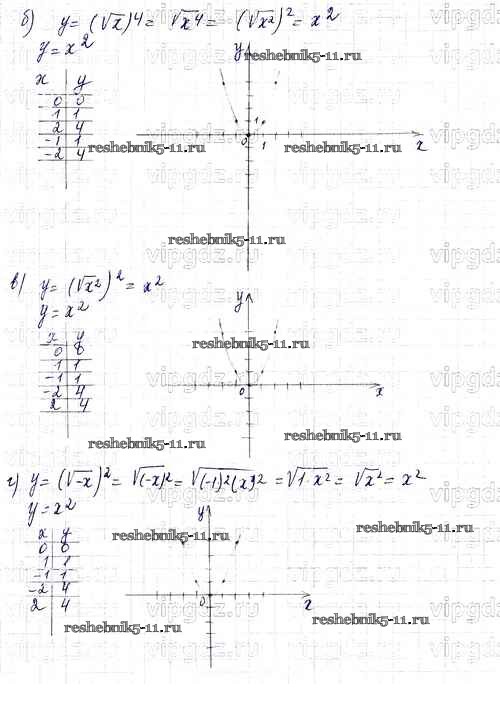 б) y = (√x)4 = √x4 = (√x2)2 = x2
y = x2
x y
0 0
1 1
2 4
-1 1
-2 4
y
1
0 1 x
reshebnik5-11.ru reshebnik5-11.ru
reshebnik5-11.ru
reshebnik5-11.ru
в) y = (√x2)2 = x2
y = x2
x y
0 0
1 1
-1 1
-2 4
2 4
y
0 x
reshebnik5-11.ru
reshebnik5-11.ru reshebnik5-11.ru
г) y = (√-x)2 = √(-x)2 = √(-1)2(x)2 = √1·x2 = √x2 = x2
y = x2
x y
0 0
1 1
-1 1
-2 4
2 4
y
0 x
reshebnik5-11.ru reshebnik5-11.ru
reshebnik5-11.ru reshebnik5-11.ru
vipgdz.ru